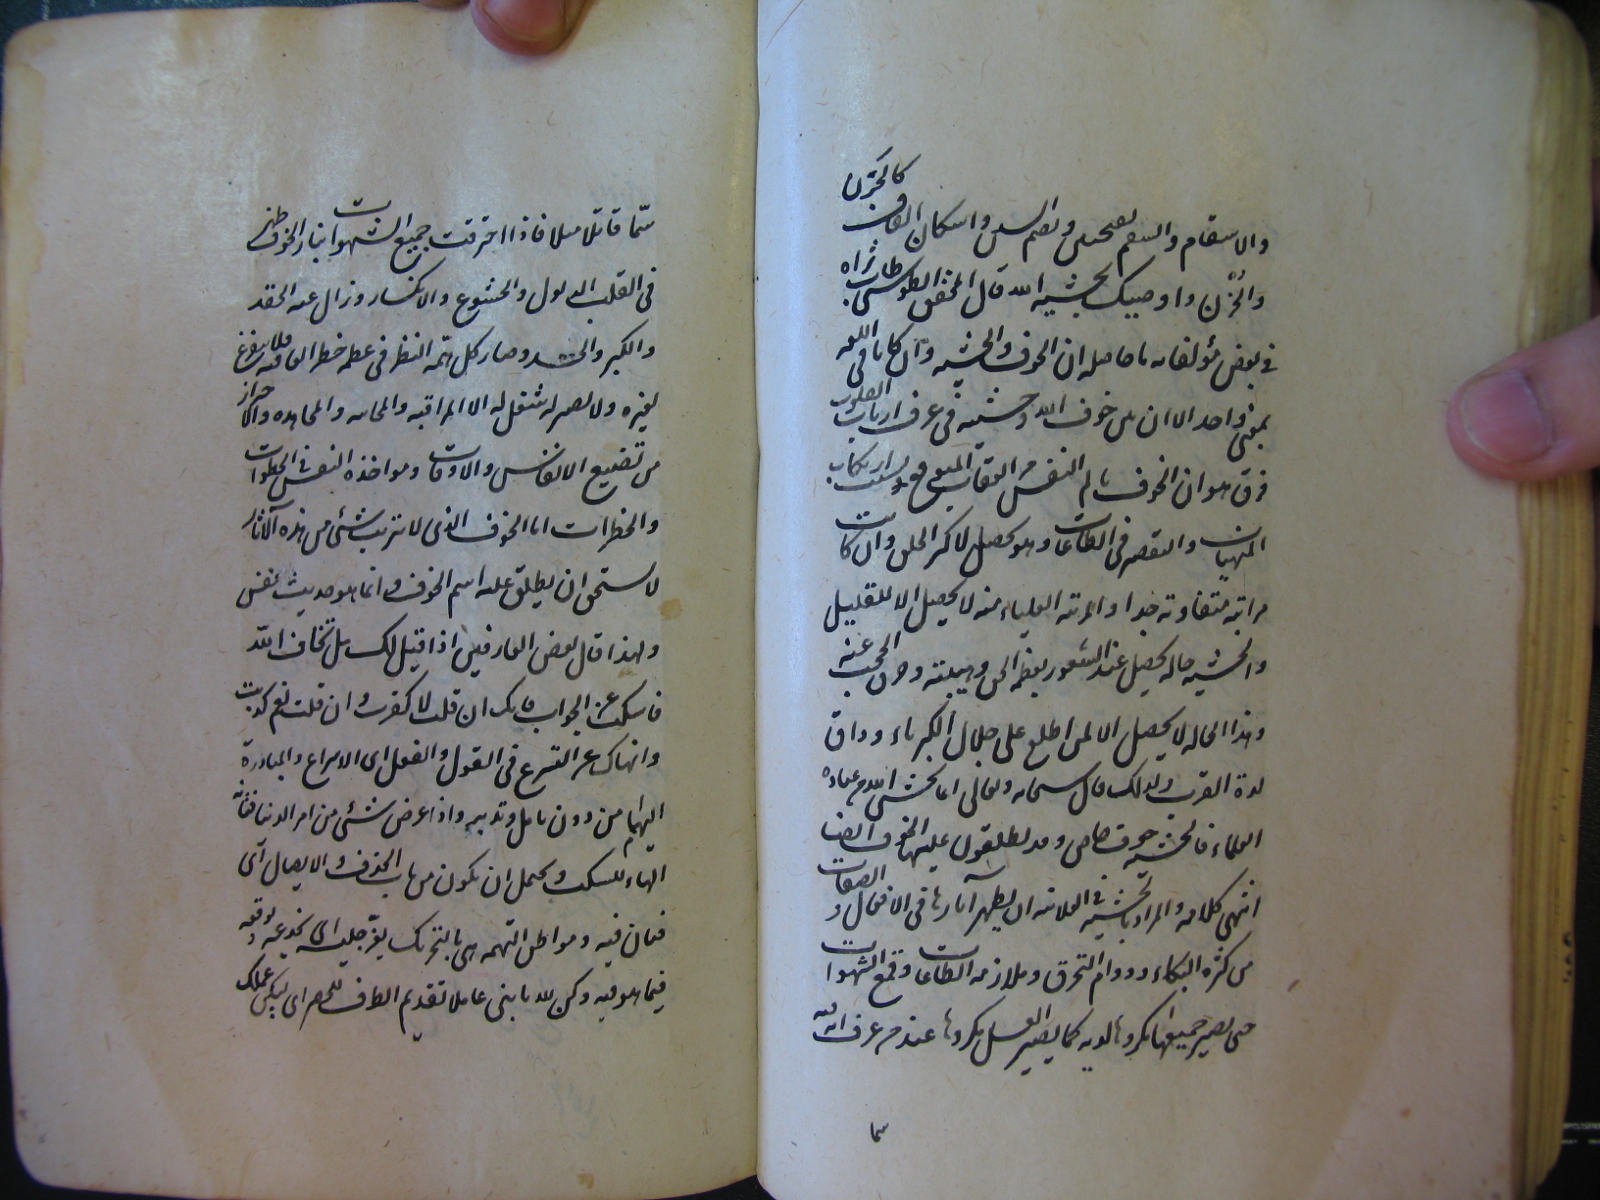 والاسقام والسقم بفتحتين وبضم السين واسكان القاف كالحَزَن
والحُزْن واوصيك بخشية الله قال المحقق الطوسي طاب ثراه
في بعض مؤلفاته ما حاصله ان الخوف والخشية وان كانا في اللغة
بمعنى واحد الا ان بين خوف الله وخشيته في عرف ارباب القلوب
فرق هو ان الخوف تالم النفس من العقاب المتوقع بسبب ارتكاب
المنهيات والتقصير في الطاعات وهو يحصل لاكثر الخلق وان كانت
مراتبه متفاوتة جدا والمرتبة العلياء منه لا يحصل الا للقليل
والخشية حالة يحصل عند الشعور بعظمة الحق وهيبته وخوف الحجب عنه
وهذا الحالة لا يحصل الا لمن اطلع على جلال الكبرياء وذاق
لذة القرب ولذلك قال سبحانه وتعالى انما يخشى الله من عباده
العلماء فالخشية خوف خاص وقد يطلقون عليها الخوف ايضا
انتهى كلامه والمراد بالخشية في العلانية ان يظهر آثارها في الافعال والصفات
من كثرة البكاء ودوام التحرق وملازمة الطاعات وقمع الشهوات
حتى يصير جميعها مكروها لديه كما يصير العسل مكروها عند من عرف ان فيه
سما
سمّا قاتلا مثلا فاذا احترقت جميع الشهوات بنار الخوف ظهر
في القلب الذبول والخشوع والانكسار وزال عنه الحقد
والكبر والحسد وصار كل همّه النظر في عظم خطر العاقبة فلا يتفرغ
لغيره ولا يصير له شغل الا المراقبة والمحاسبة والمجاهدة والاحتراز
من تضييع الانفاس والاوقات ومواخذة النفس في الخطوات
والخطرات اما الخوف الذي لا يترتب شئ من هذه الآثار
لا يستحق ان يطلق عليه اسم الخوف وانما هو حديث نفس
ولهذا قال بعض العارفين اذا قيل لك هل تخاف الله
فاسكت عن الجواب فانك ان قلت لا كفرت وان قلت نعم كذبت
وانهاك عن التسرع في القول والفعل اي الاسراع والمبادرة
اليهما من دون تامل وتدبر واذا عرض شئ من امر الدنيا فتأنّه
الهاء للسكت ويحتمل ان يكون من باب الحذف والايصال اي
فتان فيه ومواطن التهمة هي بالتحريك يغرّ جليسه اي يخدعه ويوقعه
فيما هو فيه وكن لله يا بني عاملا تقديم الظرف للحصر اي ليكن عملك